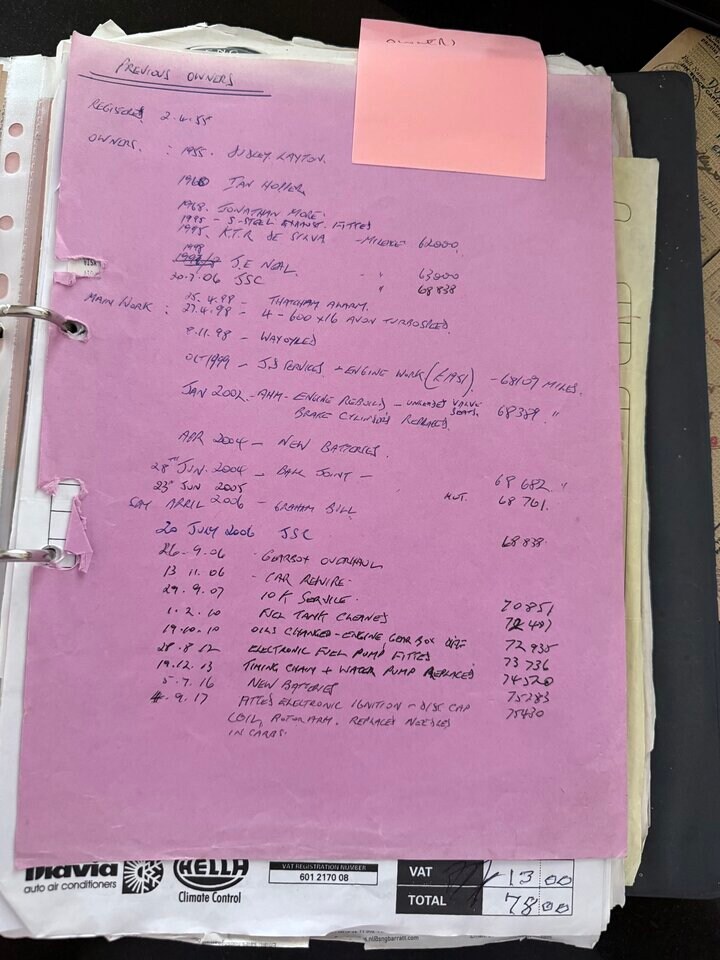 PREVIOUS OWNERS
REGISTERED 2.4.55
OWNERS. : 1955. LAYTON.
1960 IAN
1968. JONATHAN MORE.
1995 - S-STEEL EXHAUST FITTED
1995. K.T.R DE SILVA - MILEAGE 62000.
1998
J.E NEAL - " 63000
30.7.06 JSC " 68838
MAIN WORK : 25.4.98 - THATCHAM ALARM.
27.4.98 - 4 - 600 x 16 AVON TURBOSPEED
9.11.98 - WAXOYLED
OCT 1999 - J.D SERVICES + ENGINE WORK (£1951) - 68109 MILES.
JAN 2002 - AHM - ENGINE REBUILD - UNLEADED VALVE SEATS. 68389. "
BRAKE CYLINDERS REPLACED.
APR 2004 - NEW BATTERIES.
28TH JUN. 2004 - BALL JOINT - 68 682 "
23rd JUN 2005 MOT. 68 761.
APRIL 2006 - GRAHAM BILL
20 JULY 2006 JSC 68 838.
26.9.06 - GEARBOX OVERHAUL
13 11.06 - CAR REWIRE.
29.9.07 10K SERVICE. 70851
1.2.10 FUEL TANK CLEANED 72 497
19.10.10 OILS CHANGED - ENGINE GEAR BOX DIFF 72 935
28.8.12 ELECTRONIC FUEL PUMP FITTED 73 736
19.12.13 TIMING CHAIN + WATER PUMP REPLACED 74520
5.7.16 NEW BATTERIES 75283
4.9.17 FITTED ELECTRONIC IGNITION - DISC CAP 75430
COIL, ROTOR ARM. REPLACED NEEDLES
IN CARBS.
Diavia
auto air conditioners
HELLA
Climate Control
VAT REGISTRATION NUMBER
601 2170 08
VAT 13 00
TOTAL 78 00